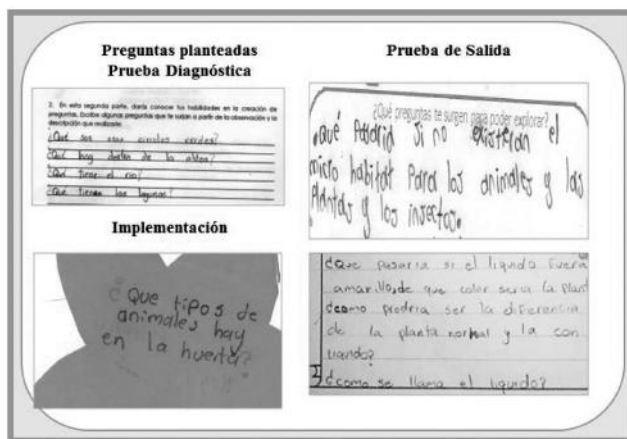 Preguntas planteadas
Prueba Diagnóstica
2. En esta segunda parte, darás conocer tus habilidades en la creación de
preguntas. Escribe algunas preguntas que te surjan a partir de la observación y la
descripción que realizaste.
¿Qué son esos circulos verdes?
¿Qué hay dentro de la aldea?
¿Qué tiene el rio?
¿Qué tienen las lagunas?
Implementación
¿Que tipos de
animales hay
en la huerta?
Prueba de Salida
¿Qué preguntas te surgen para poder explorar?
Qué Pasaria si no existeran el
micro habitat Para los animales y las
Plantas y los insectos.
¿Que pasaria si el liquido fuera
amarillo, de que color seria la plant
¿como prodria ser la diferencia
de la planta normal y la con
liquido?
¿como se llama el liquido?